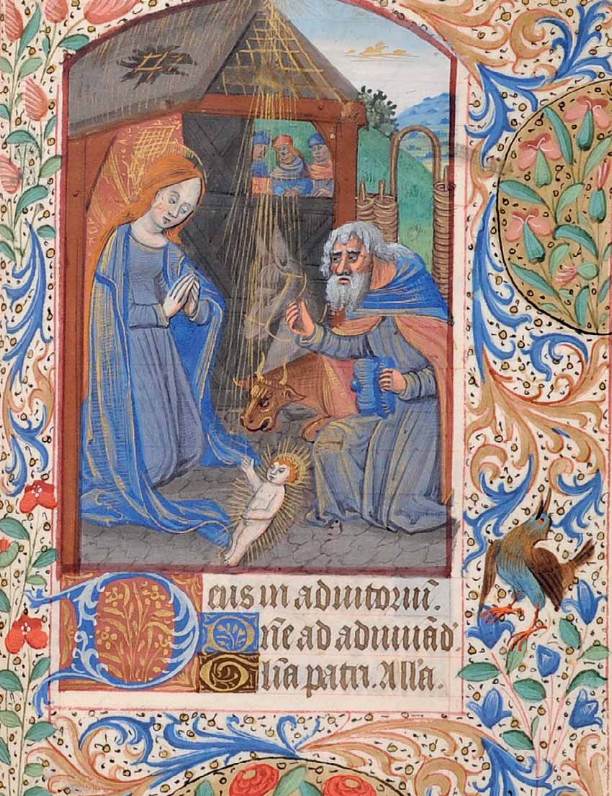 Deus in adiutoriū.
Dn̄e ad adiuuād'
Gl̄ia patri. All̄a.